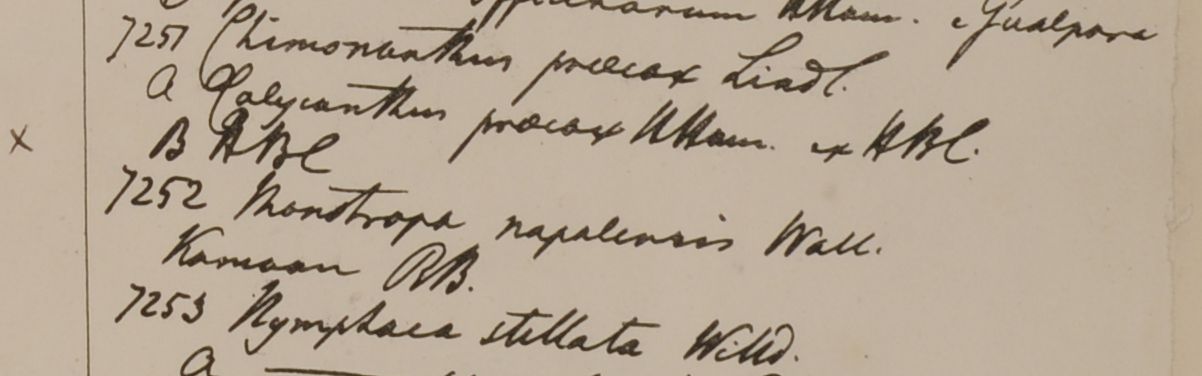 officinarum HHam. Gualpara
7251 Chimonanthus præcox Lindl.
a Calycanthus præcox HHam. ex HBC.
x B HBC
7252 Monotropa napalensis Wall.
Kamaon RB.
7253 Nymphaea stellata Willd.
a